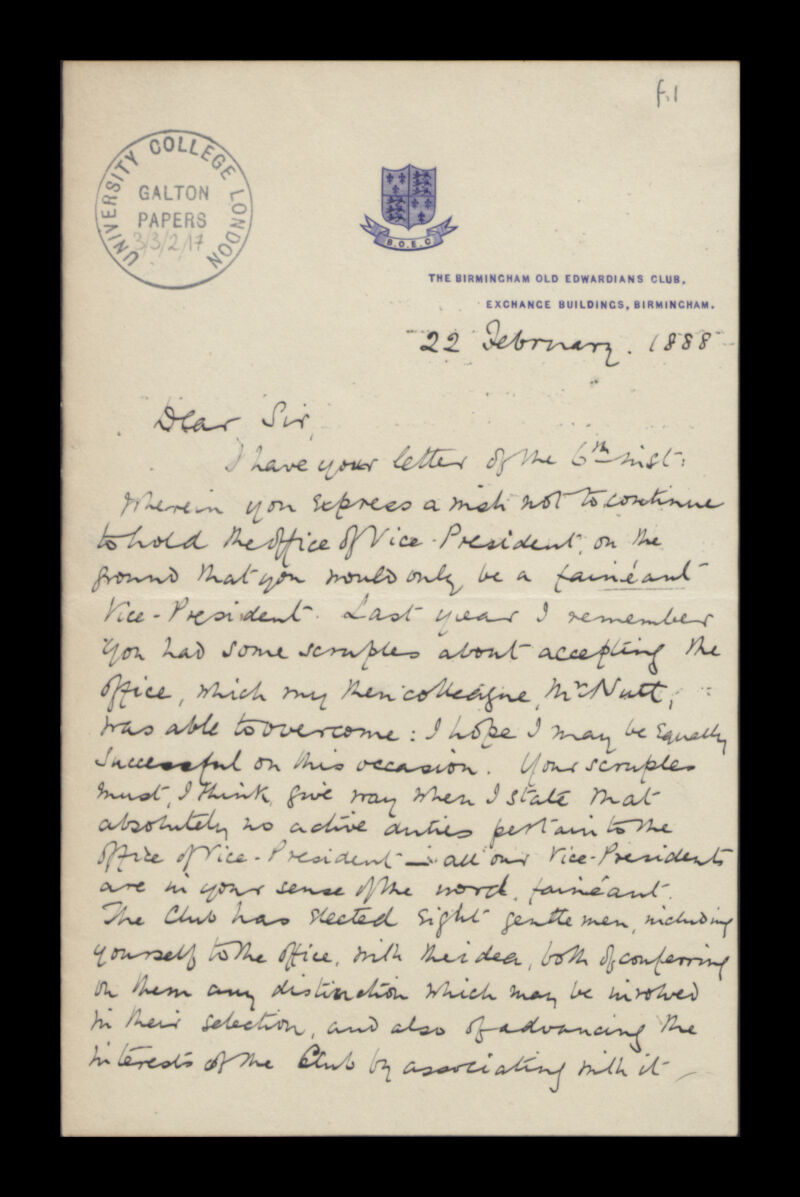 f.1
UNIVERSITY COLLEGE LONDON
GALTON
PAPERS
3/3/2/17
B.O.E.C
THE BIRMINGHAM OLD EDWARDIANS CLUB,
EXCHANGE BUILDINGS, BIRMINGHAM.
22 February. 1888
Dear Sir,
I have your letter of the 6th inst:
wherein you express a wish not to continue
to hold the office of Vice-President, on the
ground that you would only be a fainéant
Vice-President. Last year I remember
you had some scruples about accepting the
office, which my then colleague, McNutt,
was able to overcome: I hope I may be equally
successful on this occasion. Your scruples
must, I think, give way when I state that
absolutely no active duties pertain to the
office of Vice-President — all our Vice-Presidents
are in your sense of the word, fainéant.
The Club has elected eight gentlemen, including
yourself to the office, with the idea, both of conferring
on them any distinction which may be involved
in their selection, and also of advancing the
interests of the Club by associating with it